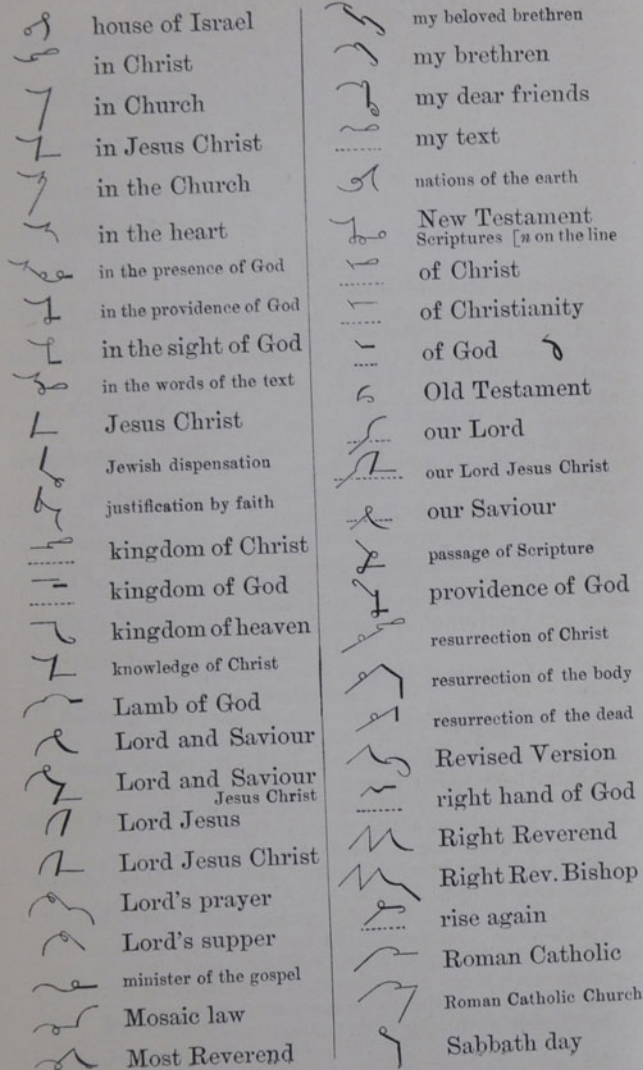 house of Israel
in Christ
in Church
in Jesus Christ
in the Church
in the heart
in the presence of God
in the providence of God
in the sight of God
in the words of the text
Jesus Christ
Jewish dispensation
justification by faith
kingdom of Christ
kingdom of God
kingdom of heaven
knowledge of Christ
Lamb of God
Lord and Saviour
Lord and Saviour
Jesus Christ
Lord Jesus
Lord Jesus Christ
Lord's prayer
Lord's supper
minister of the gospel
Mosaic law
Most Reverend
my beloved brethren
my brethren
my dear friends
my text
nations of the earth
New Testament
Scriptures [n on the line
of Christ
of Christianity
of God
Old Testament
our Lord
our Lord Jesus Christ
our Saviour
passage of Scripture
providence of God
resurrection of Christ
resurrection of the body
resurrection of the dead
Revised Version
right hand of God
Right Reverend
Right Rev. Bishop
rise again
Roman Catholic
Roman Catholic Church
Sabbath day